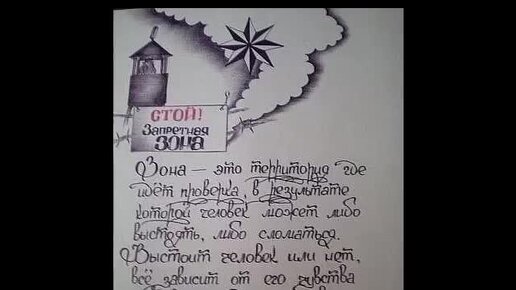 СТОЙ!
Запретная
ЗОНА
Зона — это территория где
идёт проверка, в результате
которой человек может либо
выстоять, либо сломаться.
Выстоит человек или нет,
всё зависит от его чувства